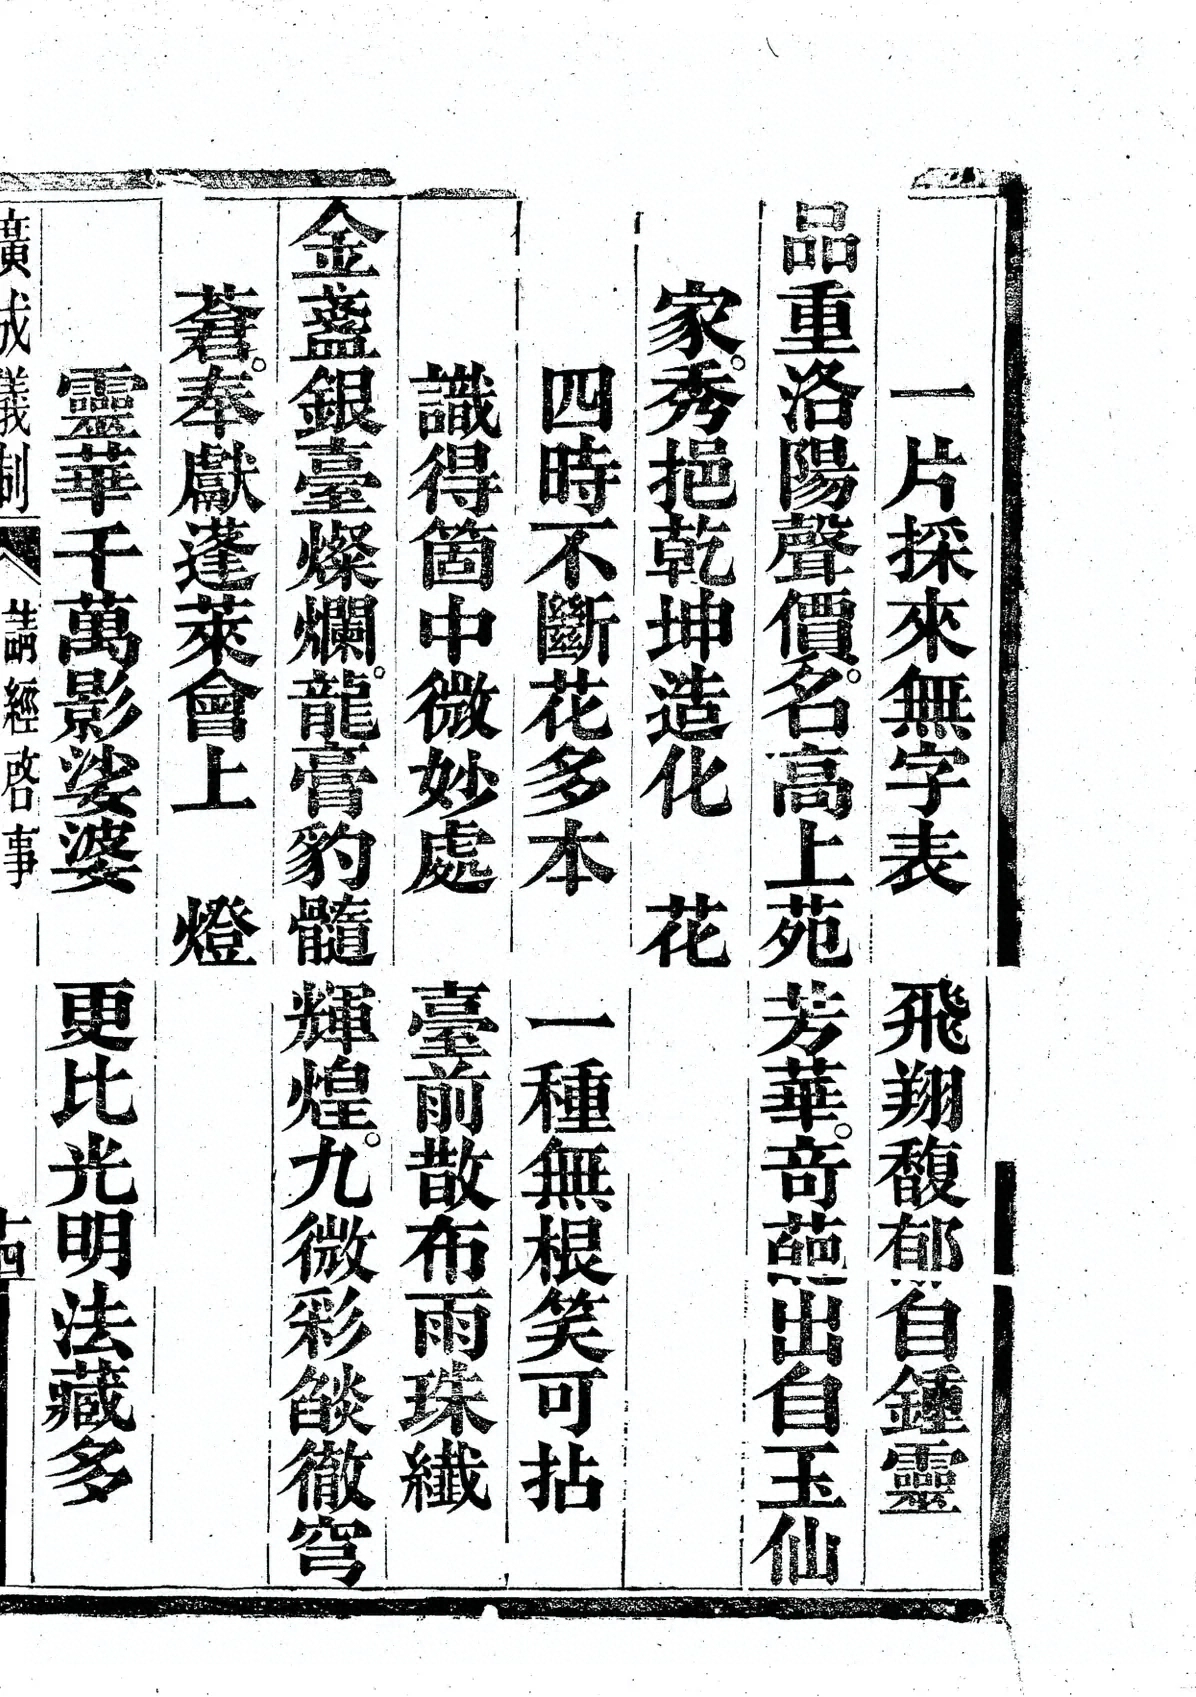 一片採來無字表　飛翔馥郁自鍾靈
品重洛陽聲價。名高上苑芳華。奇葩出自玉仙
家。秀挹乾坤造化　花
四時不斷花多本　一種無根笑可拈
識得箇中微妙處　臺前散布雨珠纖
金盞銀臺燦爛。龍膏豹髓輝煌。九微彩燄徹穹
蒼。奉獻蓬萊會上　燈
靈華千萬影娑婆　更比光明法藏多
廣成儀制　請經啓事　十四